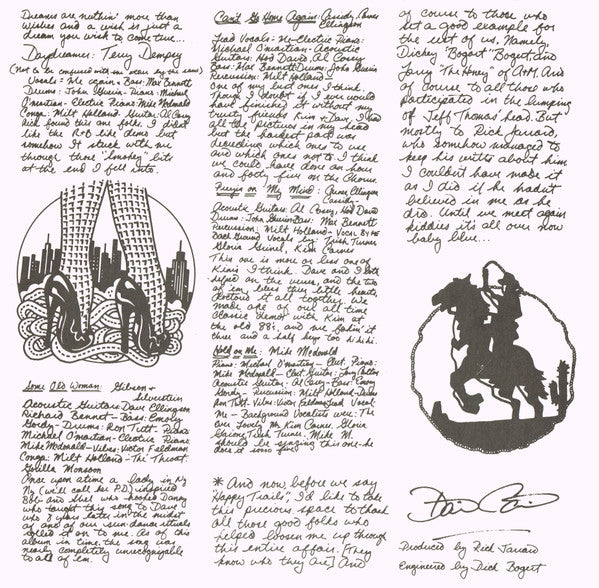 Dreams are nuthin' more than
wishes and a wish is just a
dream you wish to come true...
Daydreamer: Terry Dempsey
(Not to be confused with me by the same)
Vocals: Me again, Bass: Max Bennett
Drums: John Guerin - Piano: Michael
O'martian - Electric Piano: Mike Mcdonald
Conga: Milt Holland, Guitar: Al Casey
Rick found this one folks I didn't
like the R & B like demo but
somehow it stuck with me
through those "smokey" bits
at the end I fell into.
Some Old Woman: Gibson &
Silverstein
Acoustic Guitars: Dave Ellingson
Richard Bennet - Bass: Emory
Gordy - Drums: Ron Tutt - Piano
Michael O'martian - Electric Piano:
Mike Mcdonald - Vibes: Victor Feldman
Conga: Milt Holland - The Throat:
Gorilla Monsoon
Once upon a time a lady in N.Y.
(we'll call her P.D.) inspired
Bob and Shel who hooked Danny
who taught this song to Dave
who 3 years later in the midst
of one of our sun dance rituals
rolled it on to me. As of this
album in time, the song was
nearly completely unrecognizable
to all of em.
Can't Go Home Again: Cassidy, Carnes
Ellingson
Lead Vocals - Me - Electric Piano:
Michael O'martian - Acoustic
Guitars: Hod David, Al Casey
Bass: Max Bennett - Drums: John Guerin
Percussion: Milt Holland -
One of my best ones I think.
Though I doubt if I ever would
have finished it without my
trusty friends Kim & Dave. I had
all the pictures in my head
but the hardest part was
deciding which ones to use
and which ones not to. I think
we could have done an hour
and forty five on the Chorus
Preyin' on My Mind: Carnes Ellingson
Cassidy
Acoustic Guitars: Al Casey, Hod David
Drums: John Guerin Bass: Max Bennett
Percussion: Milt Holland - Vocals By Me
Back Ground Vocals by: Trish Turner
Gloria Grinel, Kim Carnes
This one is more or less one of
Kim's I think. Dave and I both
helped on the verses, and the two
of em, bless they little hearts,
rottond it all together. We
made one of our all time
classic demos with Kim at
the old 88's, and me fakin' it
three and a half keys too hi hi hi.
Hold on Me: Mike Mcdonald
Piano: Michael O'martian - Elect. Piano:
Mike Mcdonald - Elect. Guitar: Larry Carlton
Acoustic Guitar: Al Casey - Bass: Emory
Gordy - Percussion: Milt Holland - Drums
Ron Tutt - Vibes: Victor Feldman Lead Vocal:
Me - Background Vocalists were: The
ever lovely Ms. Kim Carnes, Gloria
Grinel, Trish Turner. Mike M.
should be singing this one - he
does it sooo fine
* And now before we say
"Happy Trails", I'd like to take
this precious space to thank
all those good folks who
helped loosen me up through
this entire affair. [They
know who they are] And
of course to those who
set a good example for
the rest of us. Namely,
Dickey "Bogert" Bogert, and
Larry "The Honey" of A&M. And
of course to all those who
participated in the lumping
of Jeff Thomas' head. But
mostly to Rick Jarrard,
who somehow managed to
keep his withs about him.
I couldn't have made it
as I did if he hadn't
believed in me as he
did. Until we meet again
kiddies it's all over now
baby blue...
Produced by Rick Jarrard
Engineered by Dick Bogert